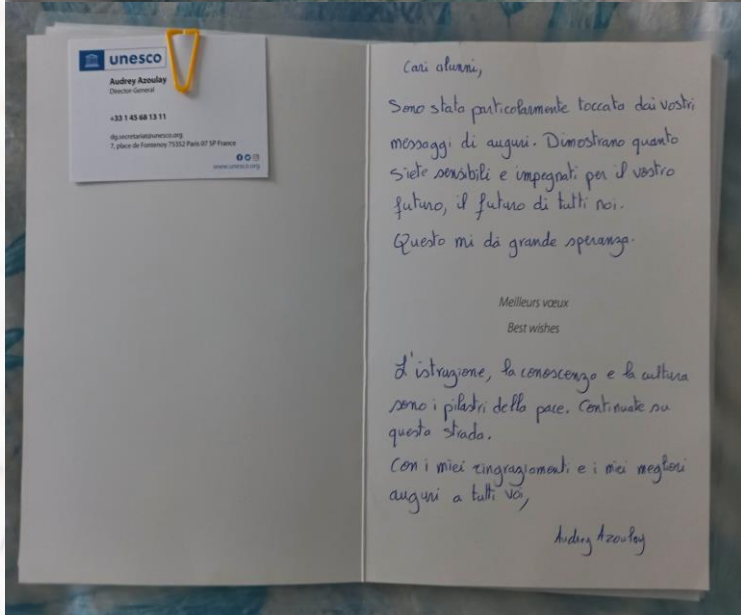 unesco
Audrey Azoulay
Director General
+33 1 45 68 13 11
dg.secretariat@unesco.org
7, place de Fontenoy 75352 Paris 07 SP France
www.unesco.org
Cari alunni,
Sono stata particolarmente toccata dai vostri
messaggi di auguri. Dimostrano quanto
siete sensibili e impegnati per il vostro
futuro, il futuro di tutti noi.
Questo mi dà grande speranza.
Meilleurs vœux
Best wishes
L'istruzione, la conoscenza e la cultura
sono i pilastri della pace. Continuate su
questa strada.
Con i miei ringraziamenti e i miei migliori
auguri a tutti voi,
Audrey Azoulay